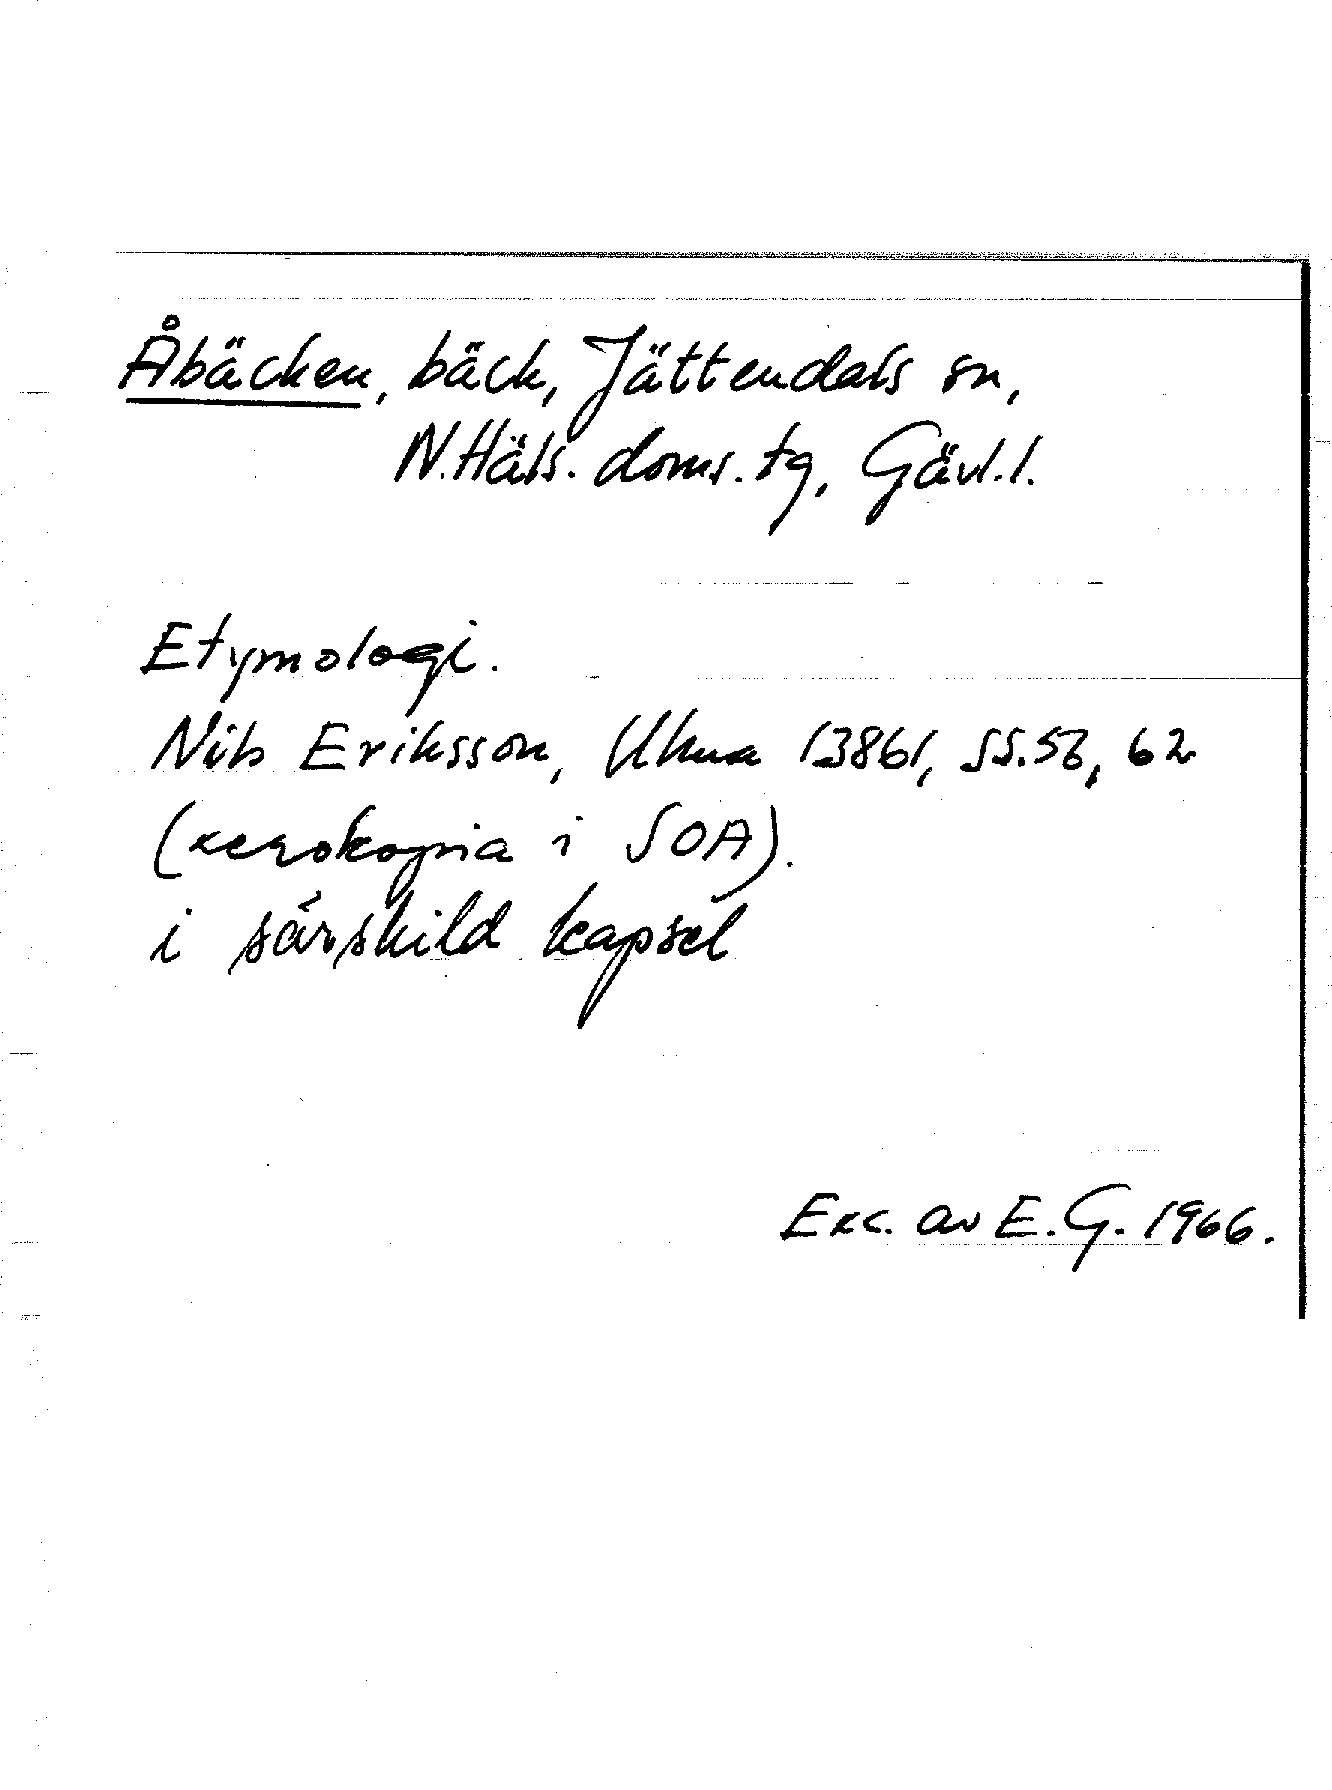 Åbäcken, bäck, Jättendals sn,
N.Häls. doms. tg, Gävl.l.
Etymologi.
Nils Eriksson, Ukua 13861, ss. 62
(xerokopia i SOA).
i särskild kapsel
Exc. av E.G. 1966.